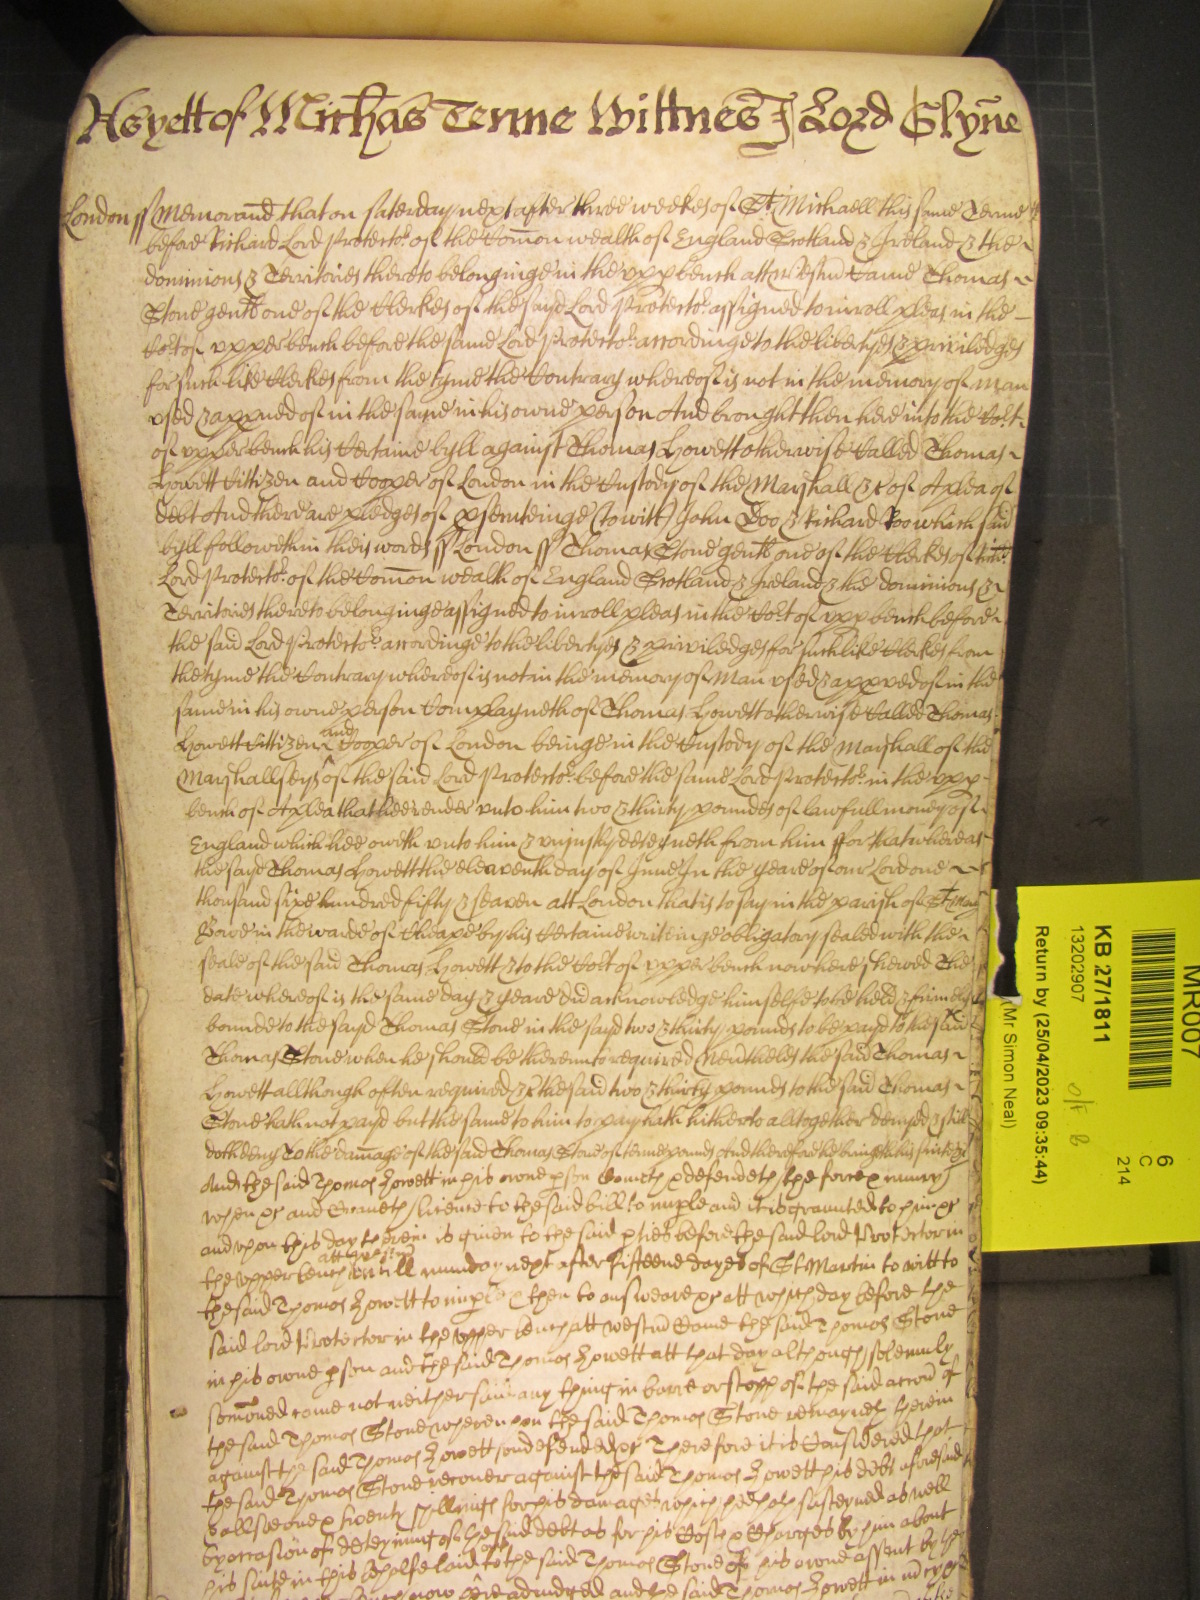 As yett of Michās Terme Wittnes J Lord Glyne
London ss Memorand that on saterday next after three weekes of St Michaell this same Terme
before Richard Lord Protector of the Comon wealth of England Scotland & Ireland & the
dominions & Territories thereto belonginge in the upp bench att Westm Came Thomas
Stone gent one of the Clerkes of the sayd Lord Protector assigned to inroll pleas in the
Cort of upper bench before the same Lord Protector accordinge to the libertyes & priviledges
for such like Clerkes from the tyme the Contrary whereof is not in the memory of Man
used & appued of in the same in his owne person And brought then here into the Cort
of upper bench his Certaine byll against Thomas Howett otherwise Called Thomas
Howett Cittizen and Cooper of London in the Custody of the Marshall &c of A plea of
debt And there are pledges of psecuteinge (to witt) John Doo & Richard Roo which said
byll followeth in theis words ss London ss Thomas Stone gent one of the Clerkes of
Lord Protector of the Comon wealth of England Scotland & Ireland & the dominions &
Territories thereto belonginge assigned to inroll pleas in the Cort of upp bench before
the said Lord Protector accordinge to the libertyes & priviledges for such like Clerkes from
the tyme the Contrary whereof is not in the memory of Man used & appved of in the
same in his owne person Complayneth of Thomas Howett otherwise Called Thomas
Howett Cittizen and Cooper of London beinge in the Custody of the Marshall of the
Marshallsey of the said Lord Protector before the same Lord Protector in the upp
bench of A plea that hee render unto him two & thirty poundes of lawfull money of
England which hee oweth unto him & uniustly deteyneth from him ffor that whereas
the sayd Thomas Howett the eleaventh day of June In the yeare of our Lord one
thousand sixe hundred fifty & seaven att London that is to say in the parish of St Mary
Bowe in the warde of Cheape by his Certaine writeinge obligatory sealed with the
seale of the said Thomas Howett & to the Cort of upper bench now here shewed The
date whereof is the same day & yeare did acknowledge himselfe to be held & firmely
bounde to the sayd Thomas Stone in the sayd two & thirty pounds to be payd to the said
Thomas Stone when he should be thereunto required Nevtheles the said Thomas
Howett allthough often required &c the said two & thirty pounds to the said Thomas
Stone hath not payd but the same to him to pay hath hitherto alltogether denyed & still
doth deny To the damage of the said Thomas Stone of tenne pounds And therefore he bringeth his suite &c
And the said Thomas Howett in his owne pson Cometh & defendeth the force & iniury
when &c and Craveth licence to the said bill to imple and it is graunted to him &c
and upon this day therein is given to the said pties before the said lord Protector in
the upper bench att Westm untill munday next after fifteene dayes of St Martin to witt to
the said Thomas Howett to imple & then to answeare &c att which day before the
said lord Protector in the upper bench att westm Came the said Thomas Stone
in his owne pson and the said Thomas Howett att that day although solemnly
somoned came not neither said any thing in barre or stopp of the said accon of
the said Thomas Stone whereupon the said Thomas Stone remaynes therein
against the said Thomas Howett undefended &c Therefore it is Considered that
the said Thomas Stone recover against the said Thomas Howett his debt aforesaid
& allsoe one & twenty shillings for his damages which he hath susteyned as well
by occasion of deteyning of the said debt as for his Costs & Charges by him about
his suite in this behalfe laid out to the said Thomas Stone of his owne assent by the
now here adiudged and the said Thomas Howett in mercy &c
MR007
6
C
214
KB 27/1811
13202907
Return by (25/04/2023 09:35:44)
(Mr Simon Neal)